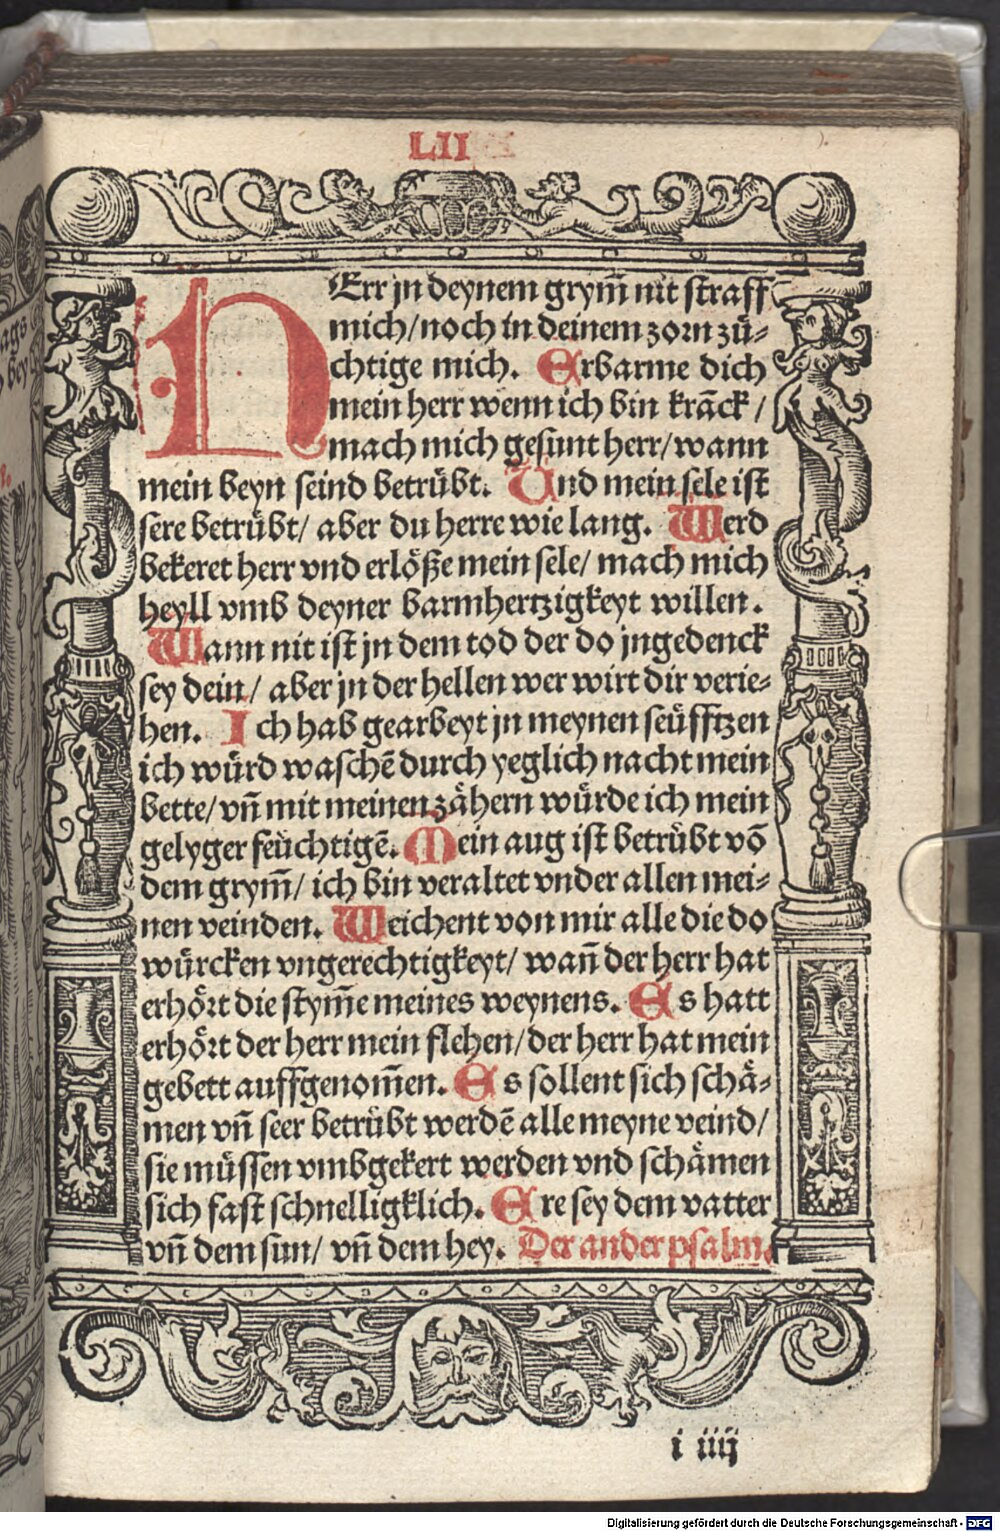 LII
HErr jn deynem grym̃ nit straff
mich/noch in deinem zorn zuͤ⸗
chtige mich. Erbarme dich
mein herr wenn ich bin krãck/
mach mich gesunt herr/wann
mein beyn seind betruͤbt. Und mein sele ist
sere betruͤbt/ aber du herre wie lang. Werd
bekeret herr vnd erloͤße mein sele/ mach mich
heyll vmb deyner barmhertzigkeyt willen.
Wann nit ist jn dem tod der do jngedenck
sey dein/ aber jn der hellen wer wirt dir verie⸗
hen. Ich hab gearbeyt jn meynen seuͤfftzen
ich wuͤrd waschẽ durch yeglich nacht mein
bette/ vñ mit meinen zaͤhern wuͤrde ich mein
gelyger feuͤchtigẽ. Mein aug ist betruͤbt võ
dem grym̃/ ich bin veraltet vnder allen mei⸗
nen veinden. Weichent von mir alle die do
wuͤrcken vngerechtigkeyt/ wañ der herr hat
erhoͤrt die stym̃e meines weynens. Es hatt
erhoͤrt der herr mein flehen/der herr hat mein
gebett auffgenom̃en. Es sollent sich schaͤ⸗
men vñ seer betruͤbt werdẽ alle meyne veind/
sie muͤssen vmbgekert werden vnd schaͤmen
sich fast schnelligklich. Ere sey dem vatter
vñ dem sun/ vñ dem hey. Der ander psalm.
i iiij
ags
bey
Digitalisierung gefördert durch die Deutsche Forschungsgemeinschaft - DFG